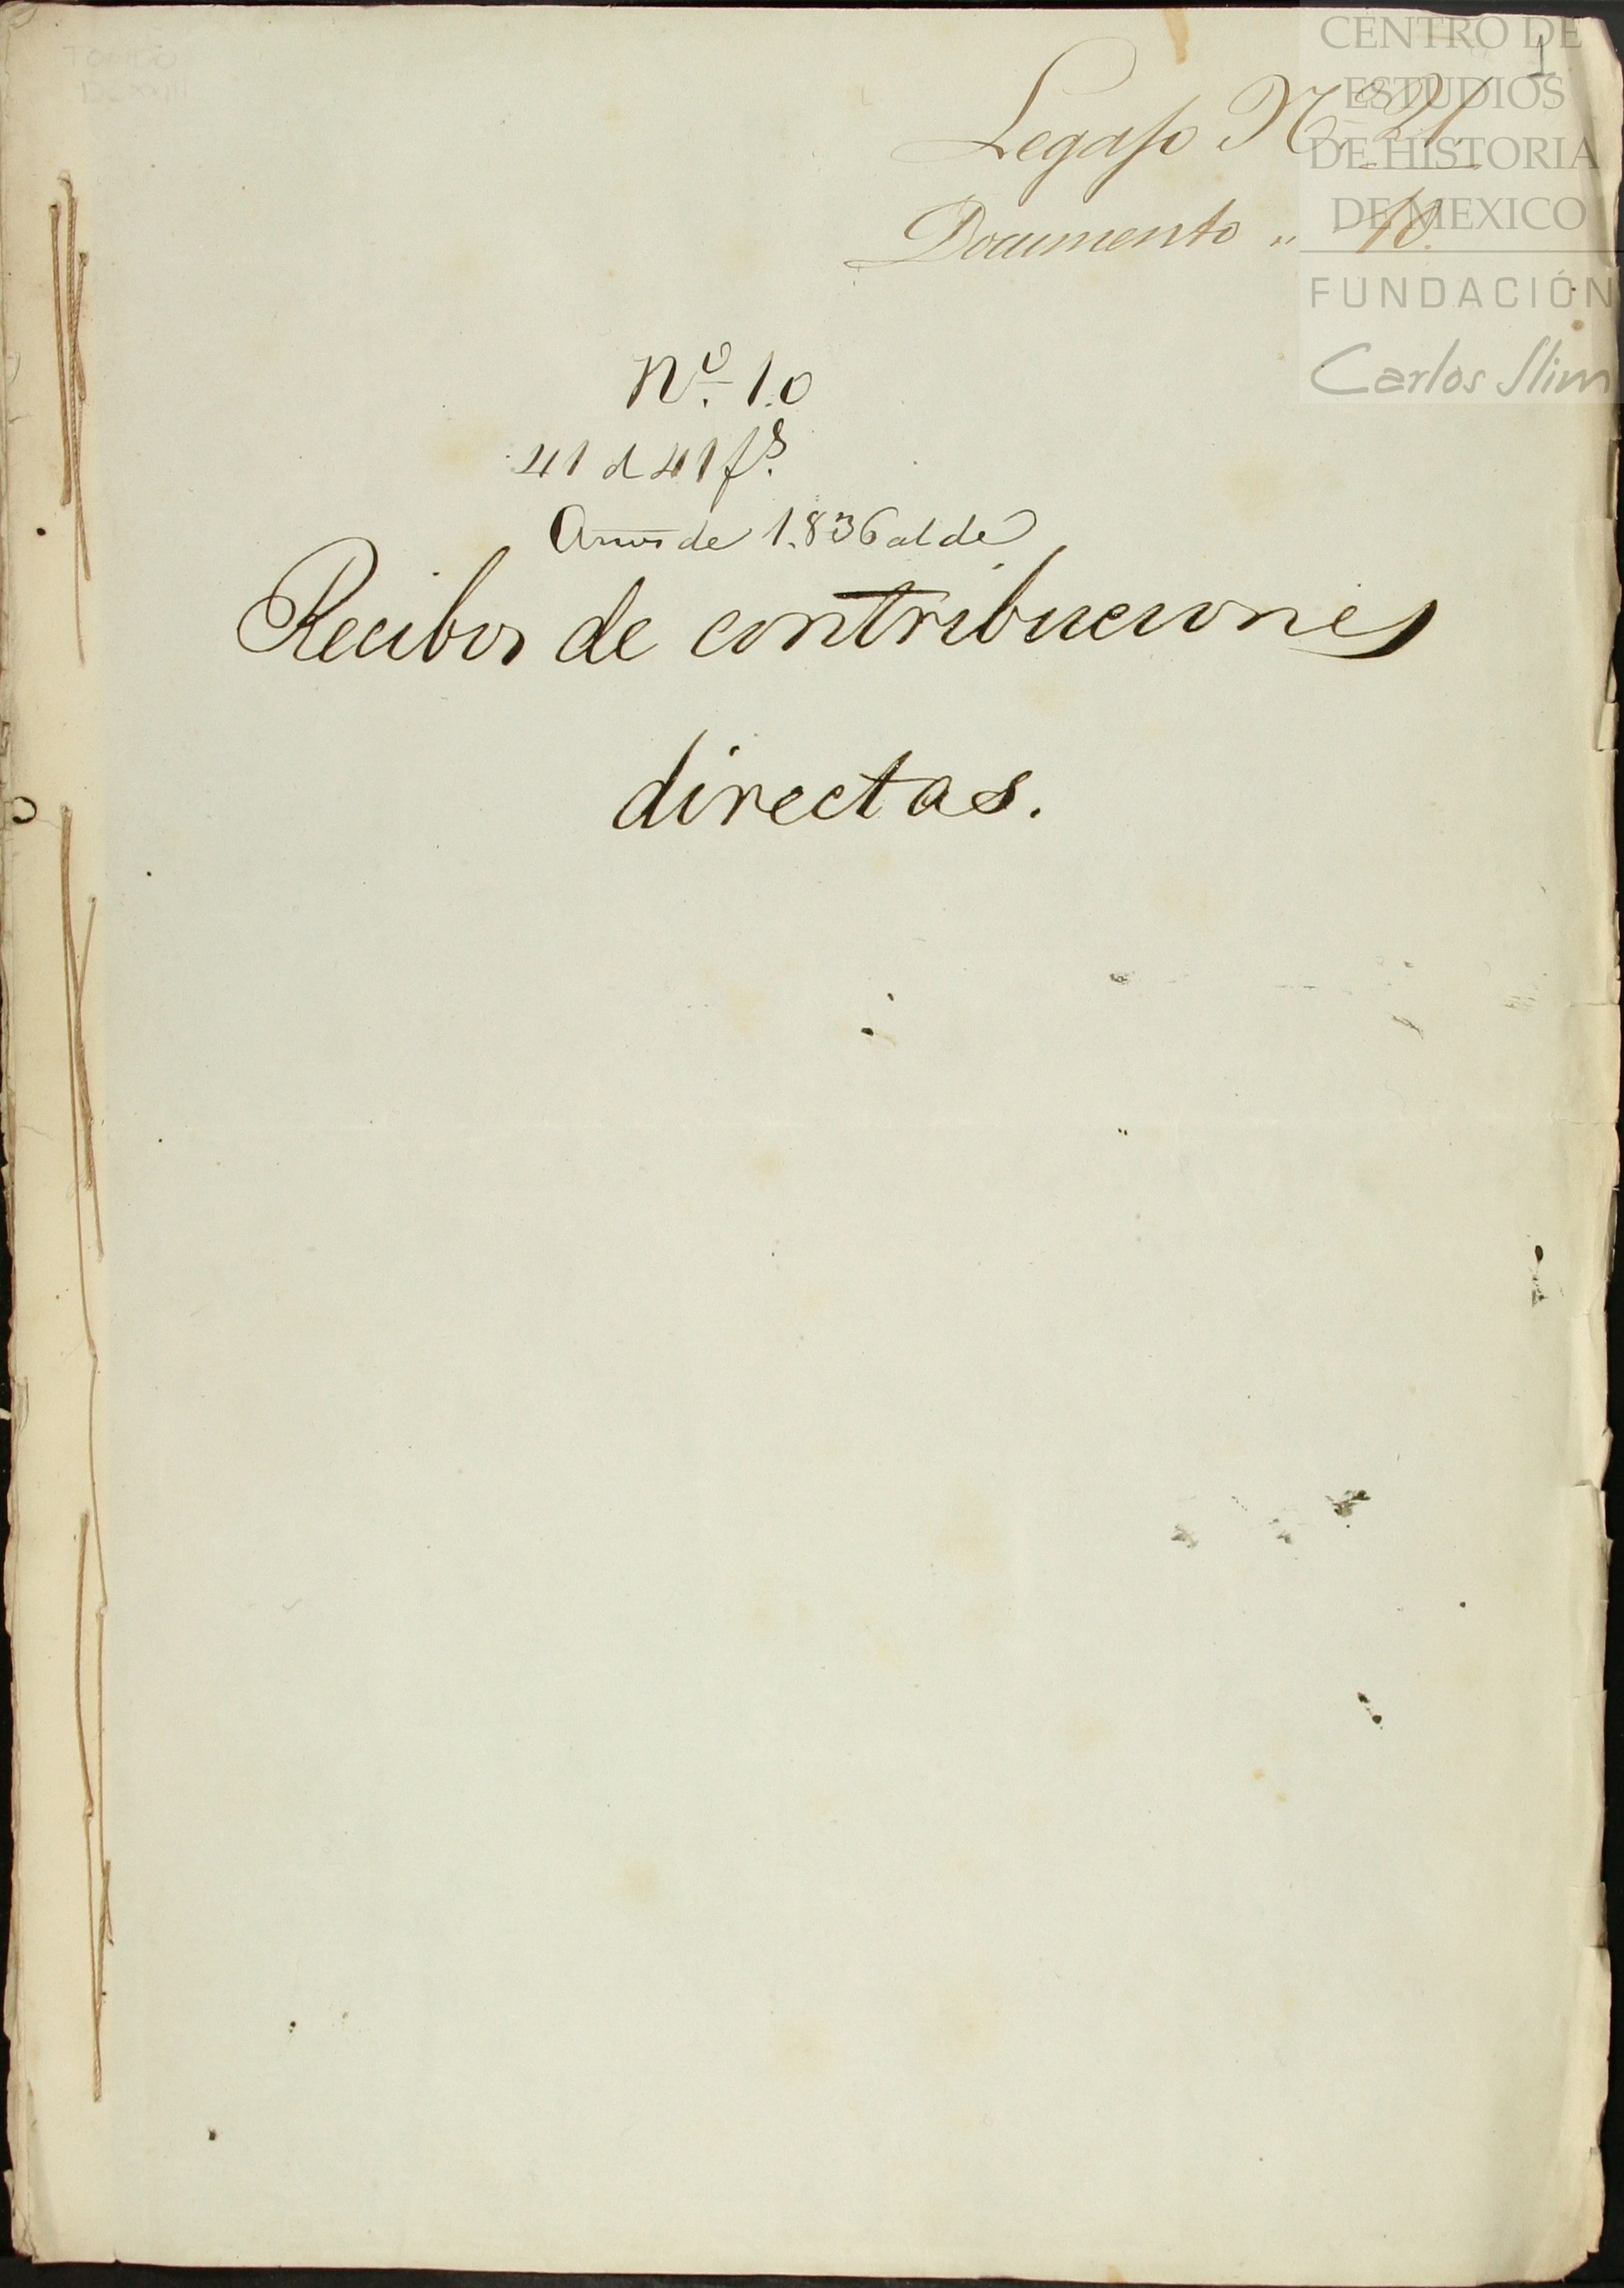 1
Legajo N.º 21
Documento „ 10.
CENTRO DE
ESTUDIOS
DE HISTORIA
DE MEXICO
FUNDACIÓN
Carlos Slim
Nº. 10
41 d 41 fs.
Años de 1.836 al de
Recibos de contribuciones
directas.